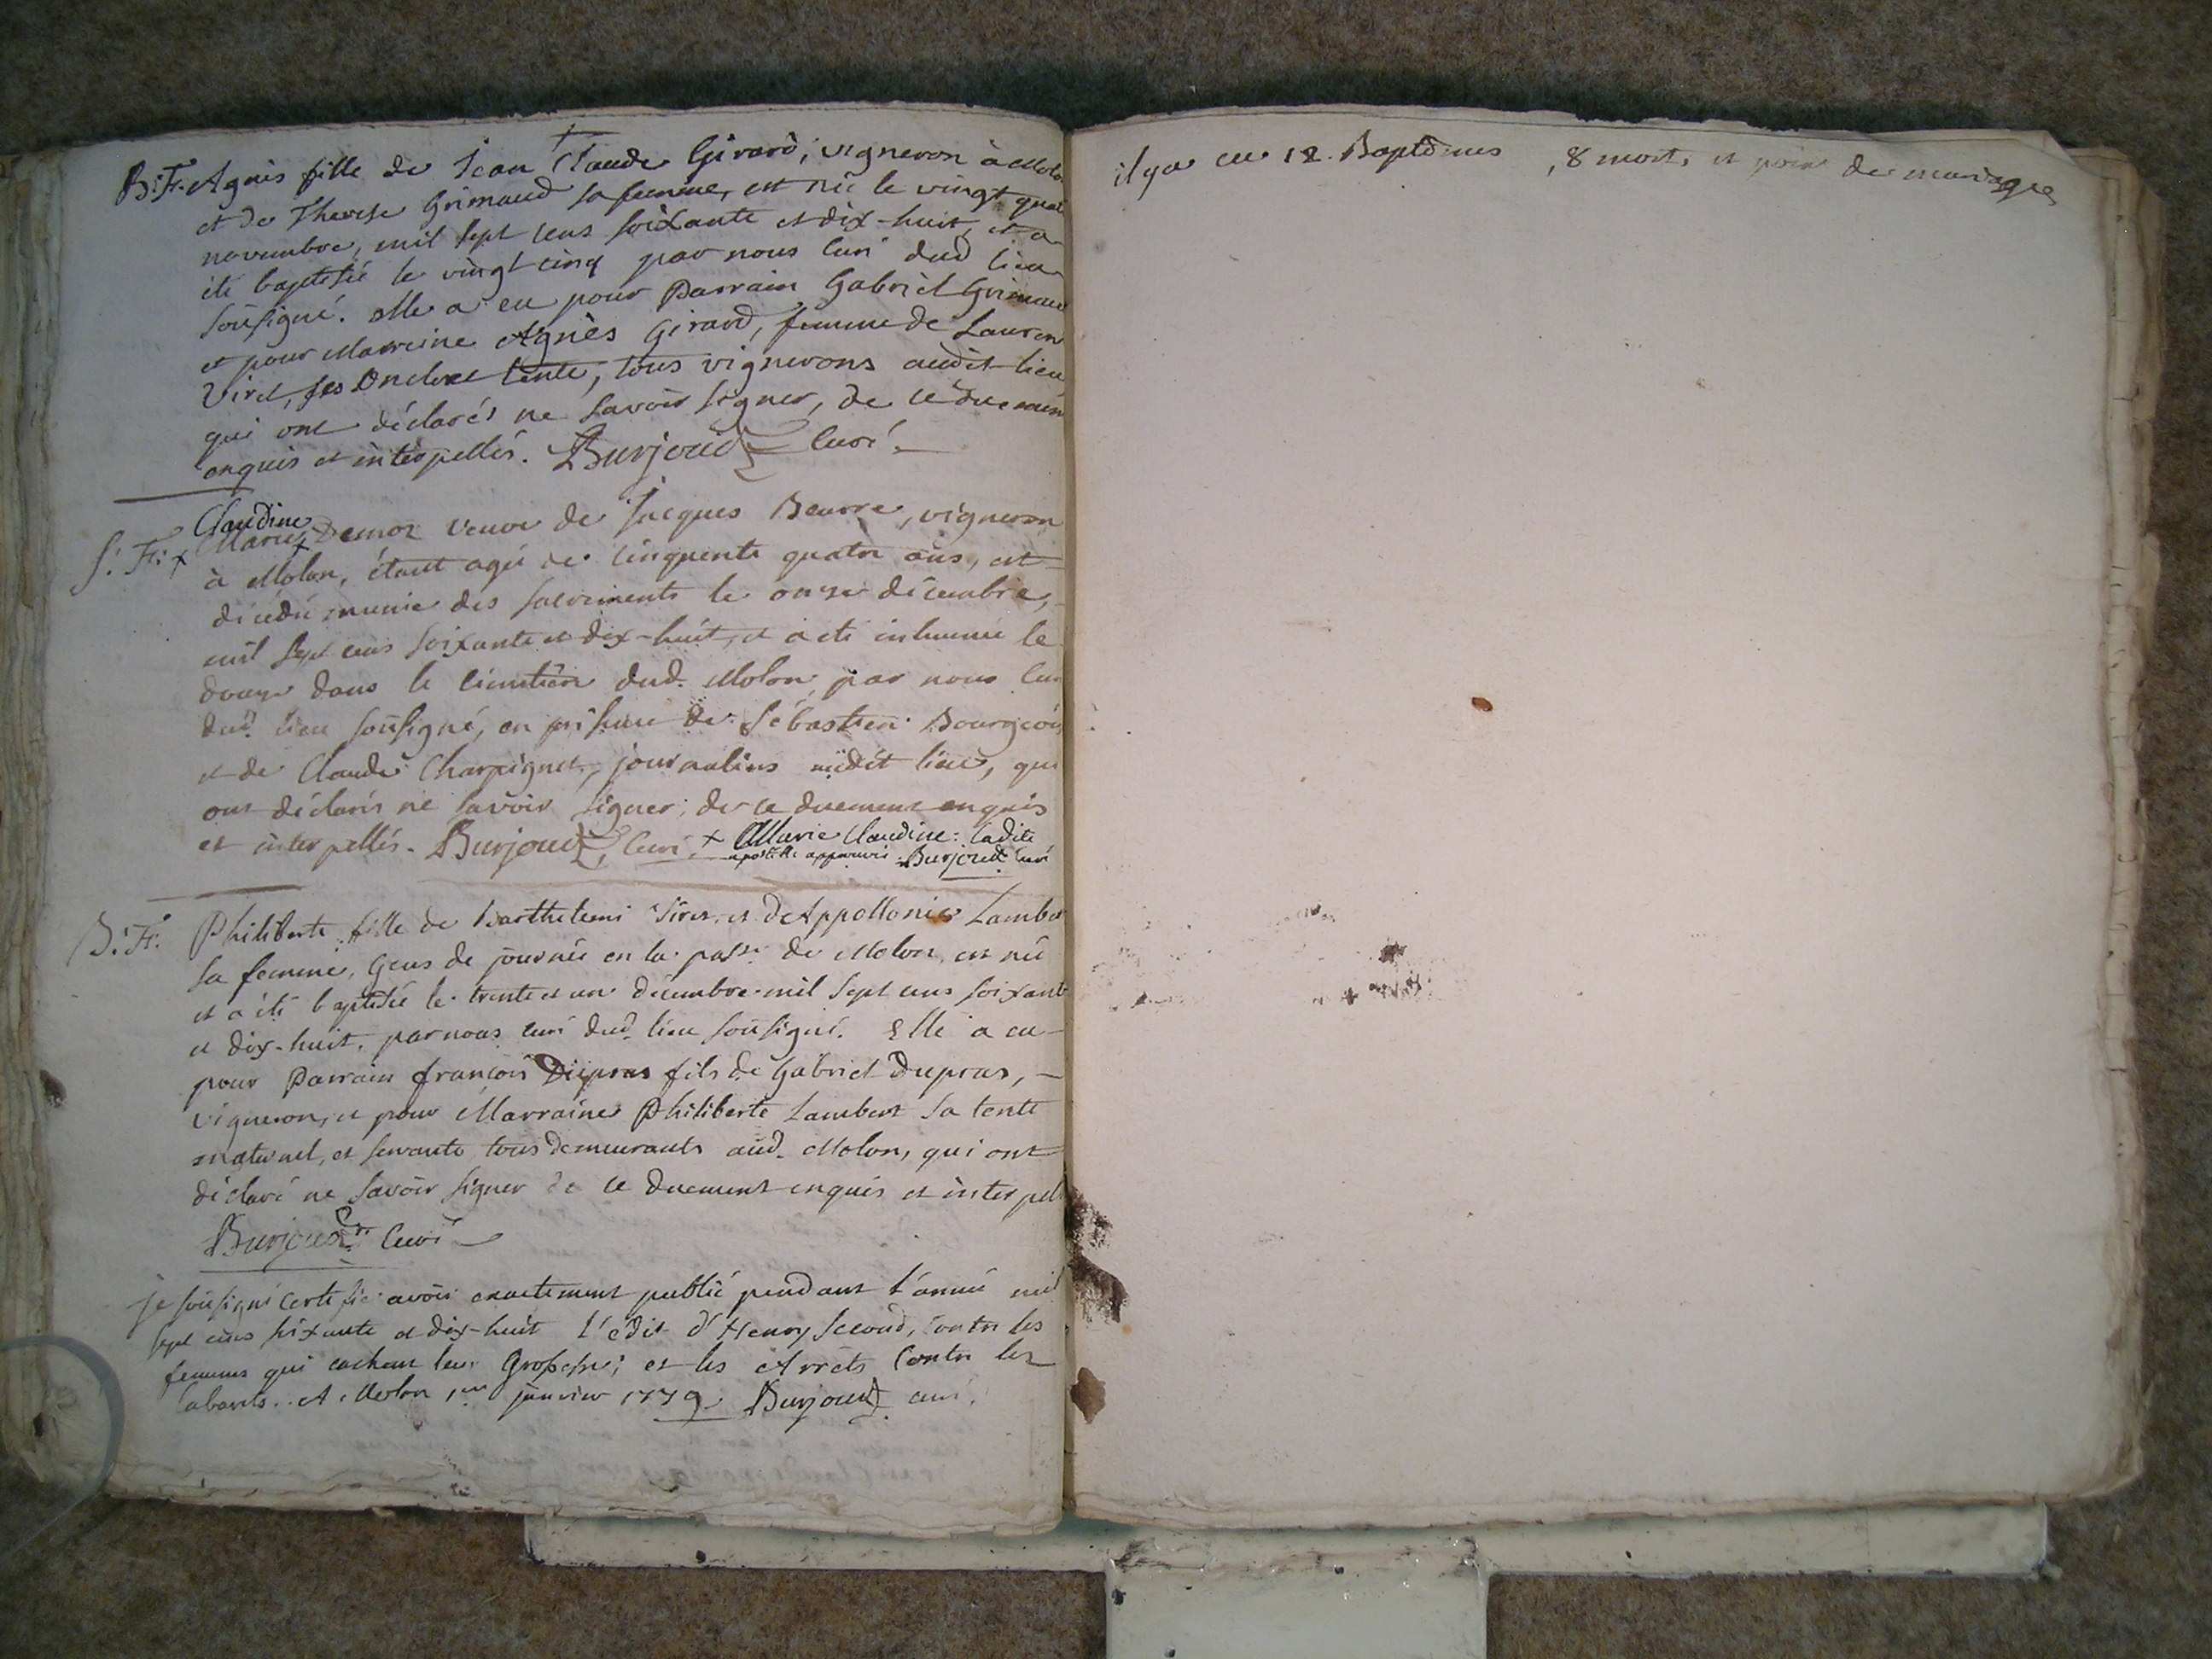 B: F: Agnès fille de Jean Claude Girard, vigneron à Molo
et de Therese Grimaud sa femme, est née le vingt quat
novembre, mil sept cens soixante et dix-huit, et a
été baptisée le vingt cinq par nous Curé dud lieu
sousigné. elle a eu pour Parrain Gabriel Grimau
et pour Marreine Agnès Girard, femme de Lauren
Viret, ses Oncle et tente, tous vignerons audit lieu
qui ont déclarés ne savoir signer, de ce duemen
enquis et interpellés. Burjoud Curé
Claudine
S: F: x Marie x Demoz veuve de Jacques Beurre, vigneron
à Molon, étant agée de cinquente quatre ans, est
décédée munie des sacrements le onze décembre,
mil sept cens soixante et dix-huit, et a été inhumée le
douze dans le cimetière dud. Molon, par nous Cur
dud. lieu sousigné, en présence de Sébastien Bourgeois
et de Claude Charpignet, journaliers audit lieu, qui
ont déclarés ne savoir signer, de ce duement enquis
et interpellés. Burjoud, Curé. x Marie Claudine: ladite
apostille approuvée. Burjoud Curé
B: F: Philiberte fille de Barthelemi Viret, et d'Appollonie Lamber
sa femme, Gens de journée en la passe de Molon, est née
et a été baptisée le trente et un décembre mil sept cens soixant
et dix-huit, par nous curé dud. lieu sousigné. Elle a eu
pour Parrain françois Dupras fils de Gabriel Dupras,
vigneron, et pour Marraine Philiberte Lambert sa tente
maternel, et servante, tous demeurants aud. Molon, qui ont
déclaré ne savoir signer de ce duement enquis et interpel
Burjoud Curé
je sousigné certifie avoir exactement publié pendant l'année mil
sept cens soixante et dix-huit l'édit d'Henry Second, contre les
femmes qui cachent leur Grossesse; et les Arrêts Contre les
Cabarets. A Molon 1er janvier 1779 Burjoud curé.
il y a eu 12. Baptêmes, 8 morts, et poin de mariages